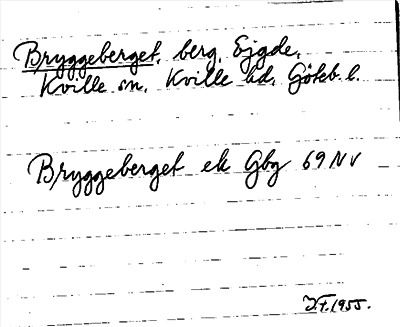 Bryggeberget, berg, Ejgde,
Kville sn, Kville hd, Göteb. l.
Bryggeberget ek Gbg 69 NV
1955.